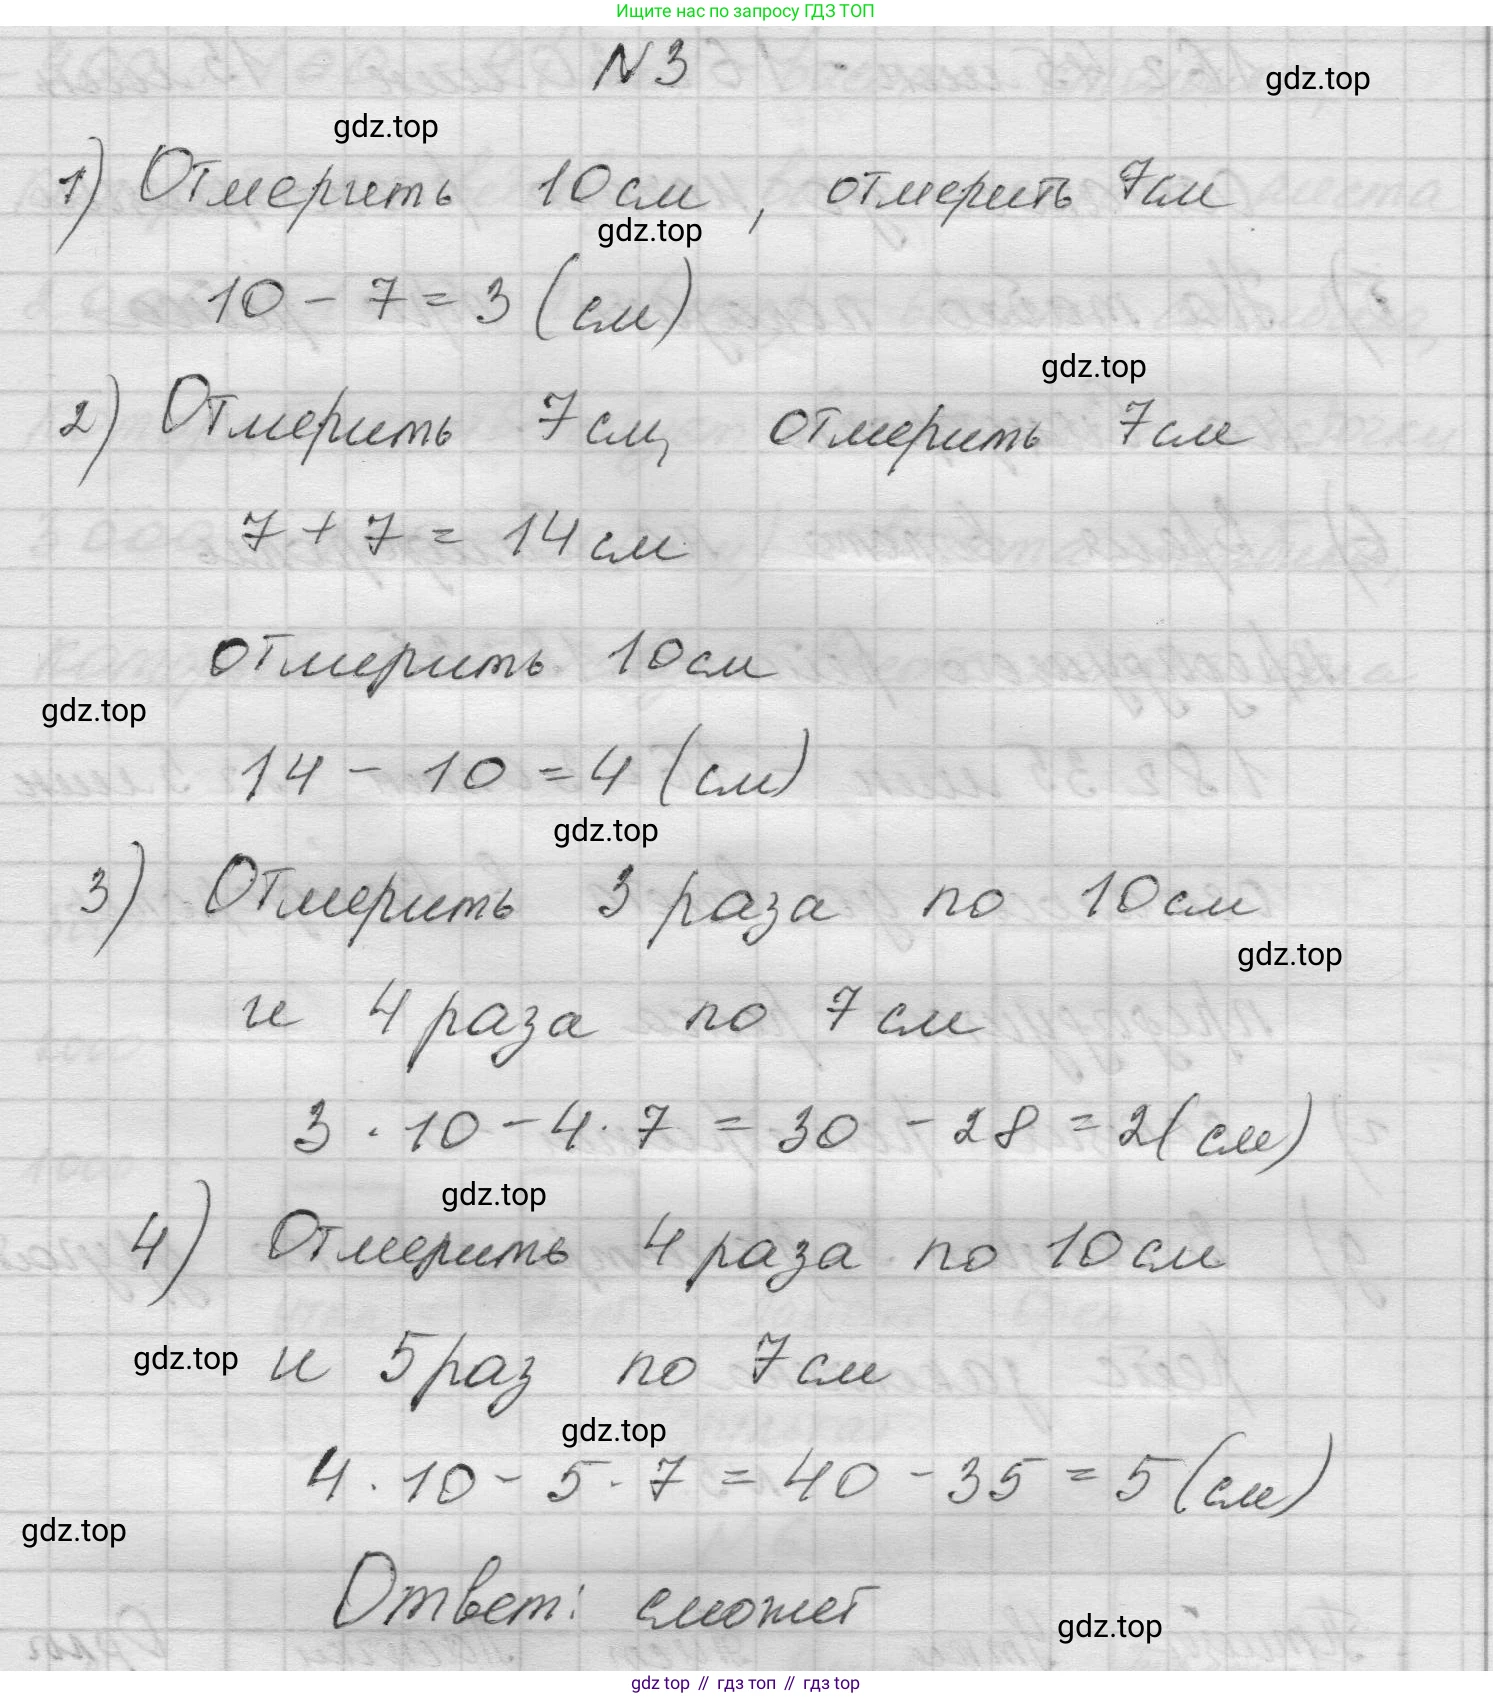 Ищите нас по запросу ГДЗ ТОП
N 3
gdz.top
gdz.top
1) Отмерить 10 см, отмерить 7 см
gdz.top
10 - 7 = 3 (см)
gdz.top
2) Отмерить 7 см, отмерить 7 см
7 + 7 = 14 см
отмерить 10 см
gdz.top
14 - 10 = 4 (см)
gdz.top
3) Отмерить 3 раза по 10 см
gdz.top
и 4 раза по 7 см
3 · 10 - 4 · 7 = 30 - 28 = 2 (см)
gdz.top
4) Отмерить 4 раза по 10 см
gdz.top
и 5 раз по 7 см
gdz.top
4 · 10 - 5 · 7 = 40 - 35 = 5 (см)
gdz.top
Ответ: сможет
gdz.top
gdz top // гдз топ // гдз top